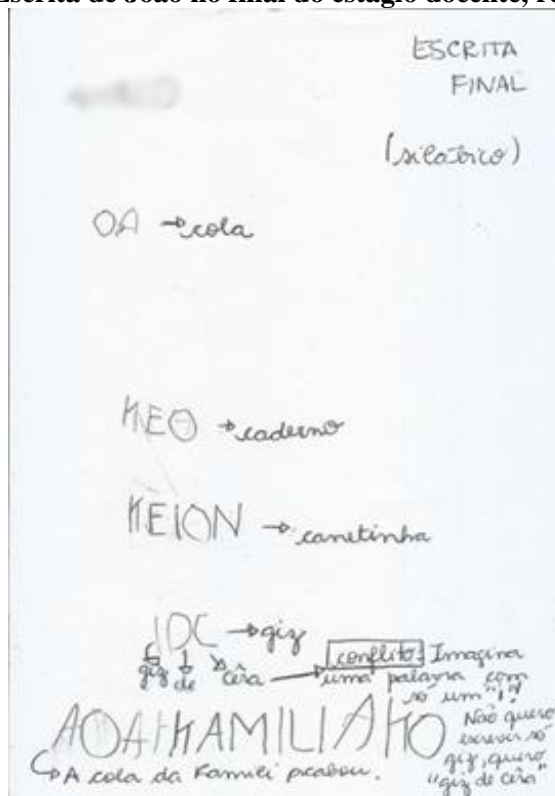 Escrita de João no final do estágio docente, re
ESCRITA
FINAL
(silábico)
OA → cola
KEO → caderno
KEION → canetinha
IDC → giz
giz de cêra → conflito: Imagina
uma palavra com
só um "i"!
Não quero
escrever só
giz, quero
"giz de cêra"
AOAHKAMILIAKO
A cola da Kamili acabou.